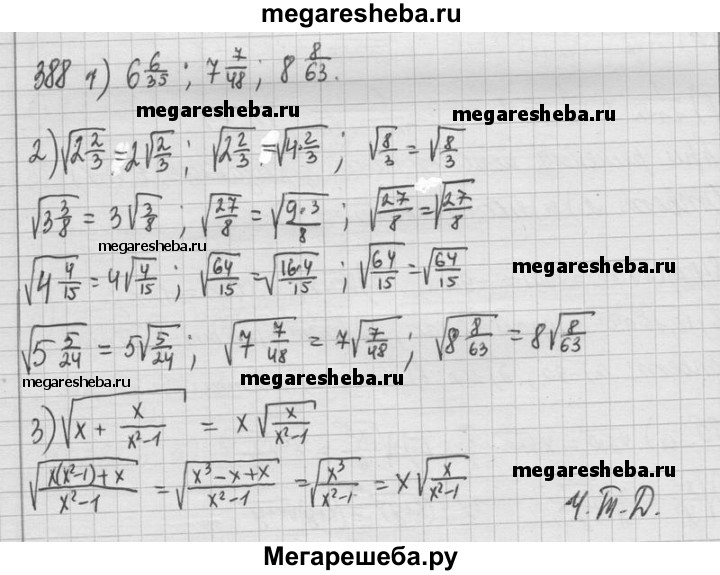 megaresheba.ru
388 1) 6 6/35; 7 7/48; 8 8/63.
megaresheba.ru megaresheba.ru
2) √(2 2/3) = 2√(2/3); √(2 2/3) = √(4·2/3); √(8/3) = √(8/3)
√(3 3/8) = 3√(3/8); √(27/8) = √(9·3/8); √(27/8) = √(27/8)
megaresheba.ru
√(4 4/15) = 4√(4/15); √(64/15) = √(16·4/15); √(64/15) = √(64/15)
megaresheba.ru
√(5 5/24) = 5√(5/24); √(7 7/48) = 7√(7/48); √(8 8/63) = 8√(8/63)
megaresheba.ru megaresheba.ru
3) √(x + x/(x²-1)) = x√(x/(x²-1))
√((x(x²-1)+x)/(x²-1)) = √((x³-x+x)/(x²-1)) = √(x³/(x²-1)) = x√(x/(x²-1))
megaresheba.ru
Ч.Т.Д.
Мегарешеба.ру